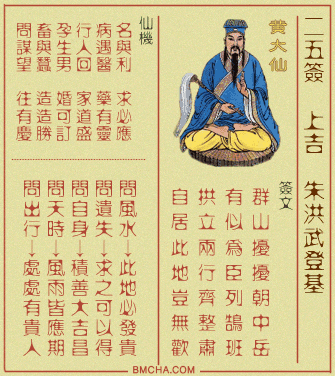 二五簽 上吉 朱洪武登基
黃大仙
簽文
群山擾擾朝中岳
有似為臣列鵠班
拱立兩行齊整肅
自居此地豈無歡
仙機
名與利 求必應
病遇醫 藥有靈
行人回 家道盛
孕生男 婚可訂
畜與蠶 造造勝
問謀望 往有慶
問風水→此地必發貴
問遺失→求之可以得
問自身→積善大吉昌
問天時→風雨皆應期
問出行→處處有貴人
BMCHA.COM